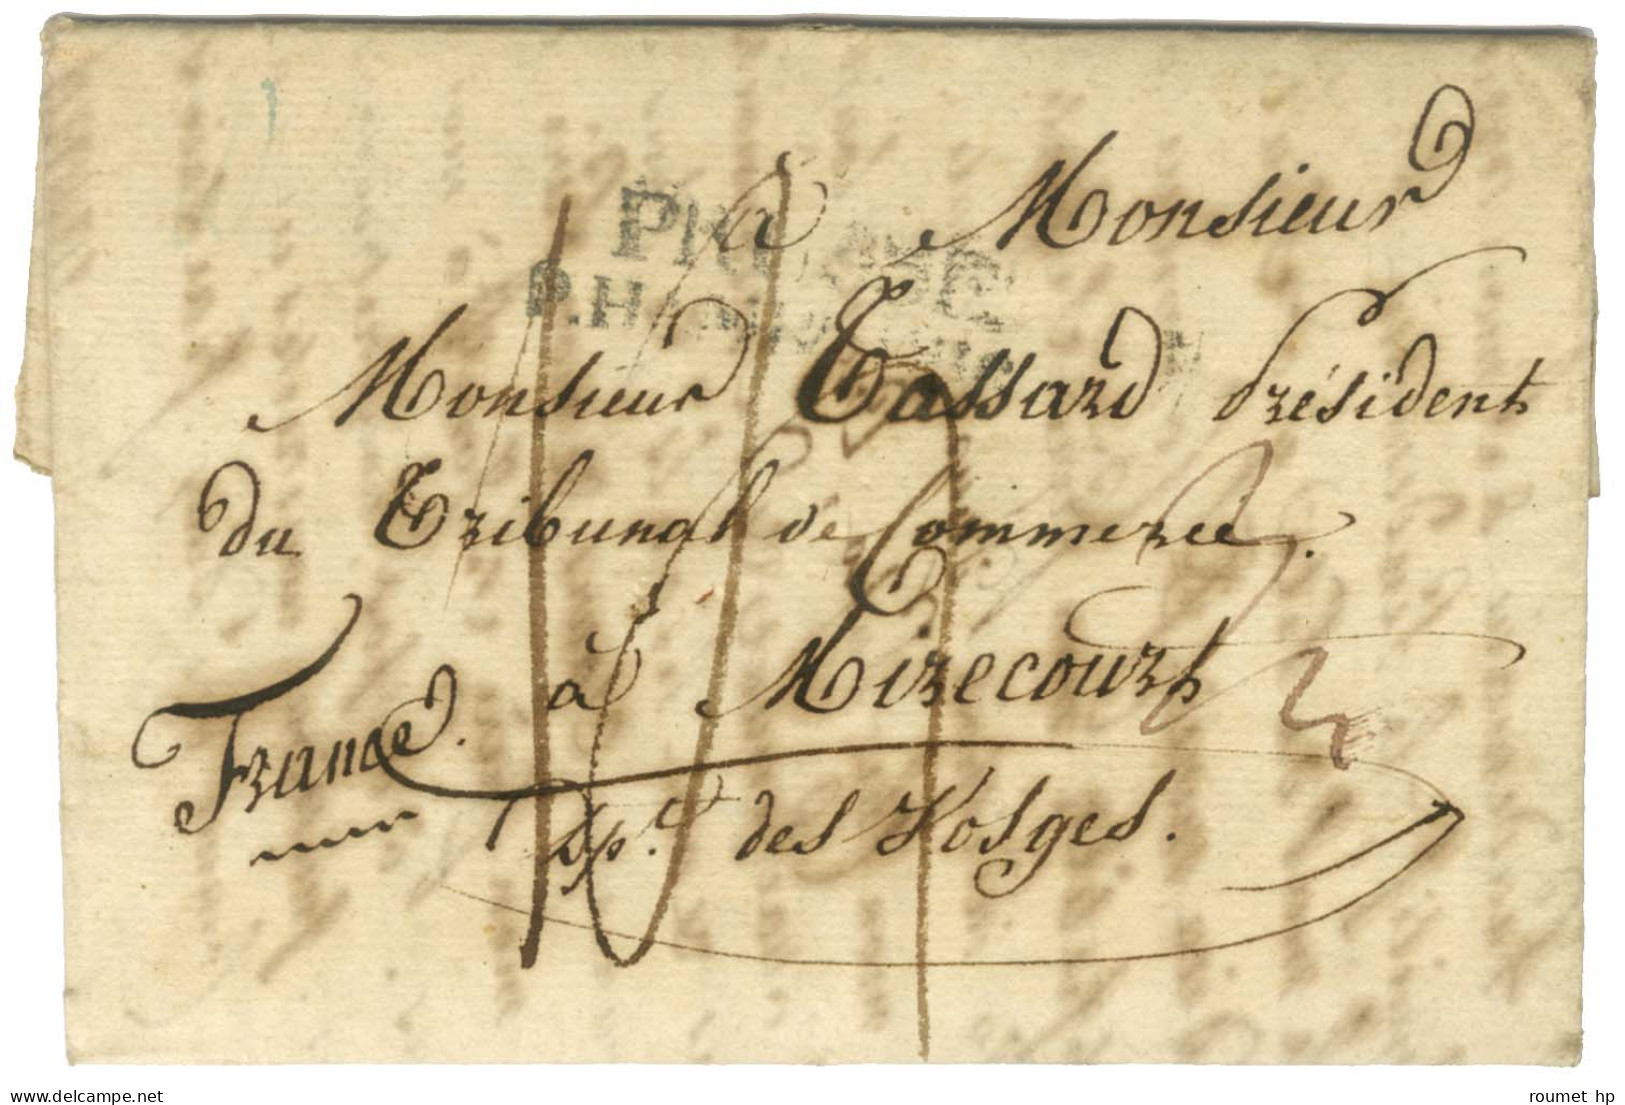 à Monsieur
Monsieur Tassard Président
du Tribunal de Commerce.
à Mirecourt
France.
Dp.t des Vosges.
roumet hp